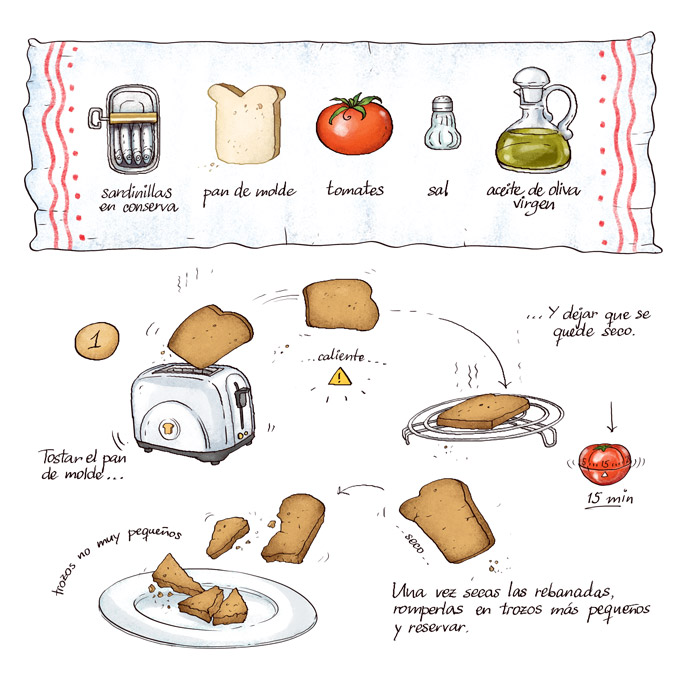 sardinillas
en conserva
pan de molde
tomates
sal
aceite de oliva
virgen
1
Tostar el pan
de molde...
...caliente...
!
...Y dejar que se
quede seco.
5 15
15 min
trozos no muy pequeños
...seco...
Una vez secas las rebanadas,
romperlas en trozos más pequeños
y reservar.